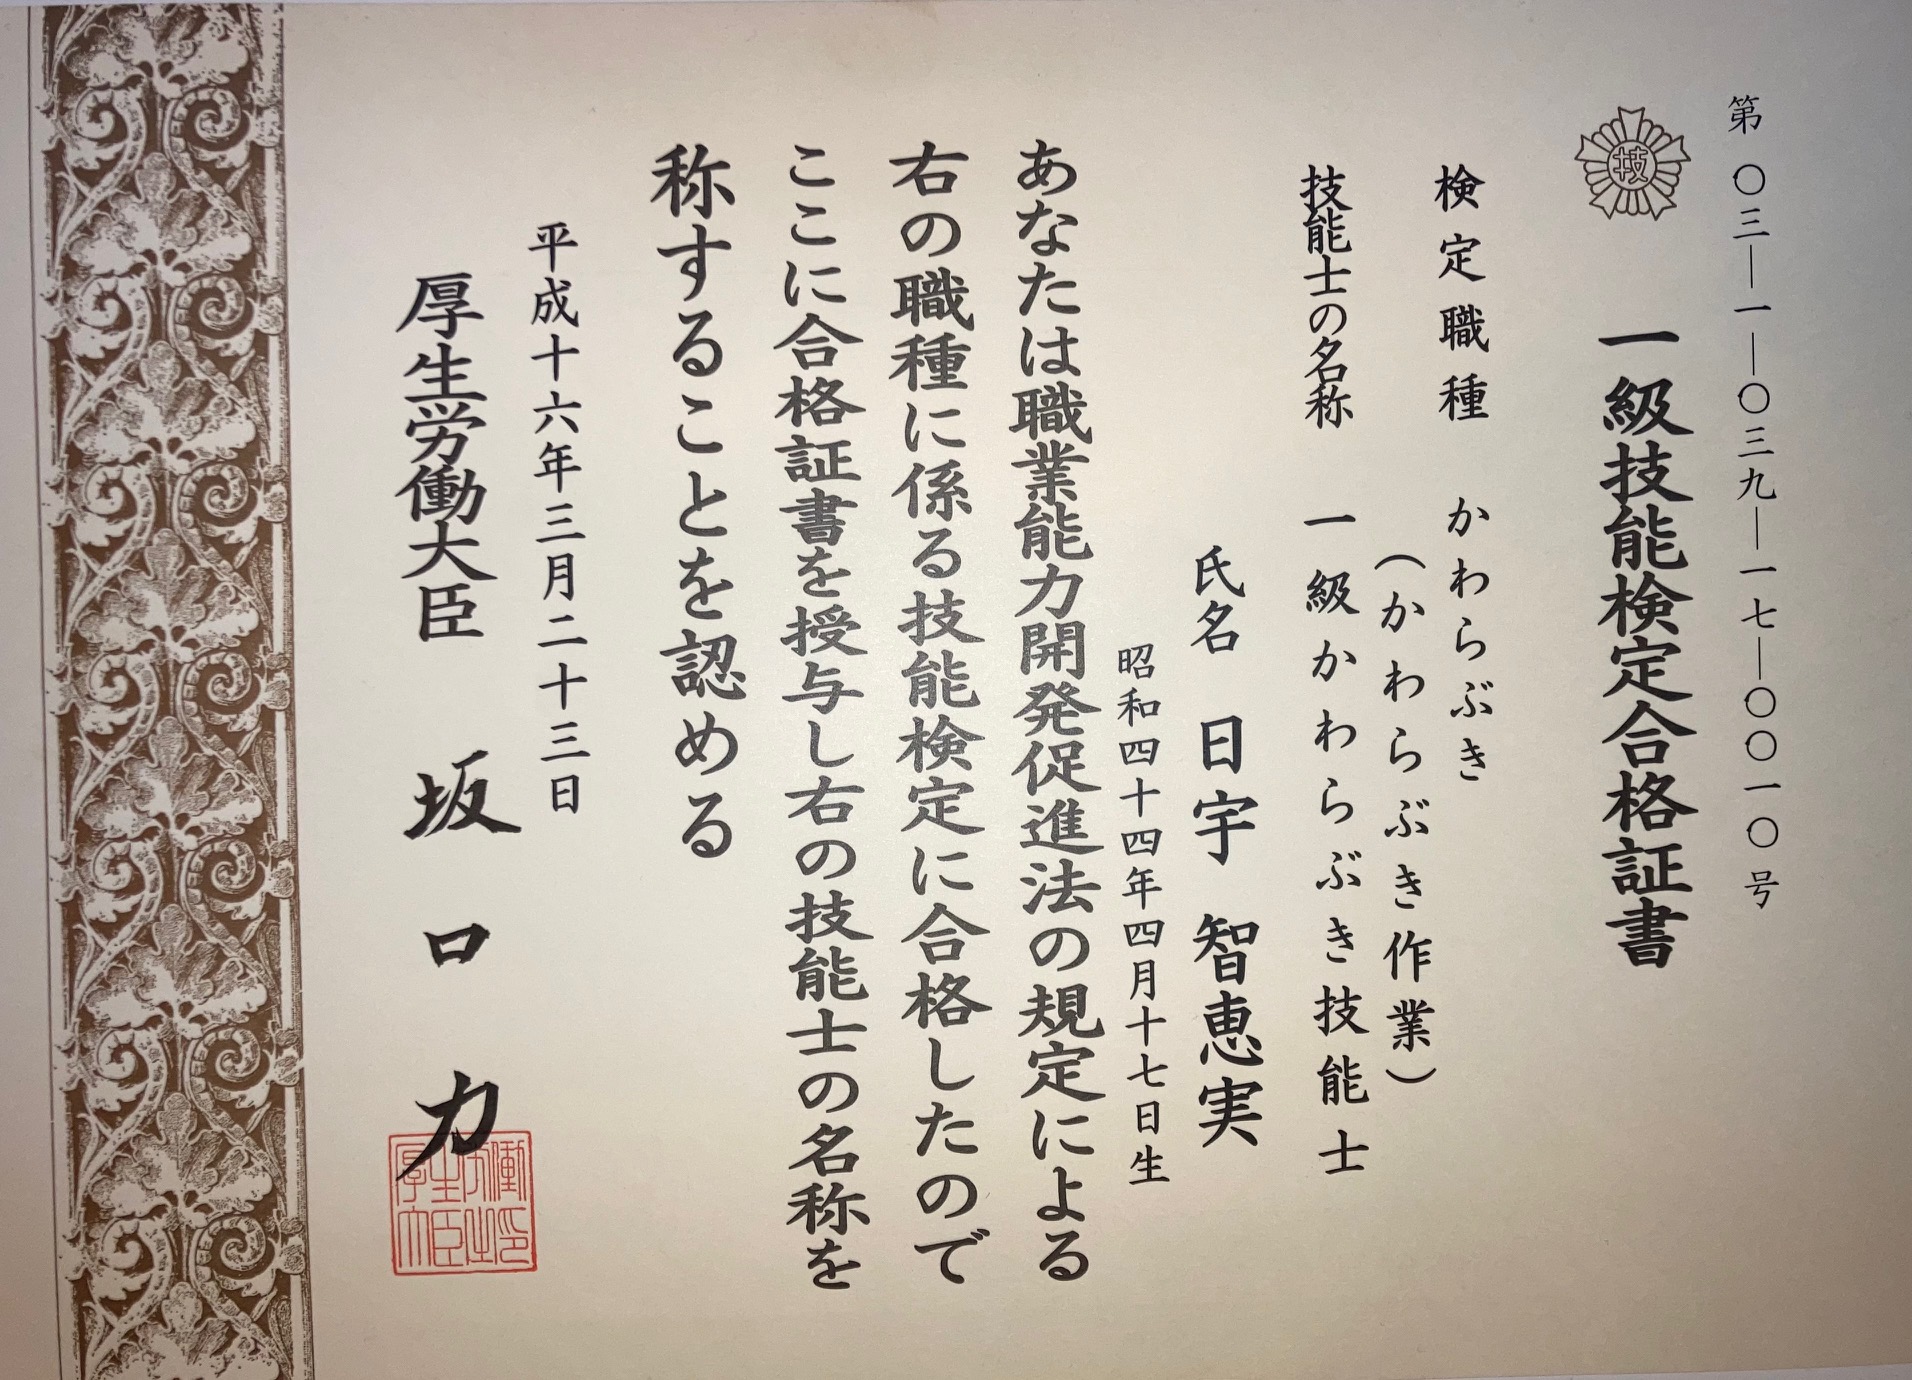 第〇三―一―〇三九―一七―〇〇一〇号
技
一級技能検定合格証書
検定職種 かわらぶき
(かわらぶき作業)
技能士の名称 一級かわらぶき技能士
氏名 日宇 智恵実
昭和四十四年四月十七日生
あなたは職業能力開発促進法の規定による
右の職種に係る技能検定に合格したので
ここに合格証書を授与し右の技能士の名称を
称することを認める
平成十六年三月二十三日
厚生労働大臣 坂口力
働印
労之
生臣
厚大